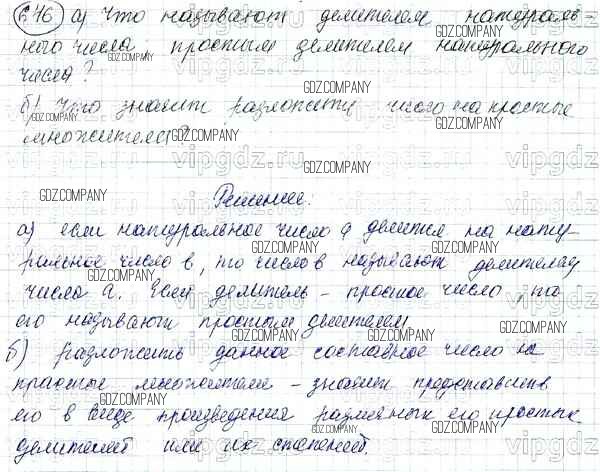 646 а) Что называют делителем натураль-
ного числа, простым делителем натурального
числа?
б) Что значит разложить число на простые
множители?
Решение:
а) если натуральное число a делится на нату
ральное число b, то число b называют делителем
числа a. Если делитель - простое число, то
его называют простым делителем
б) разложить данное составное число на
простые множители - значит представить
его в виде произведения различных его простых
делителей или их степеней.